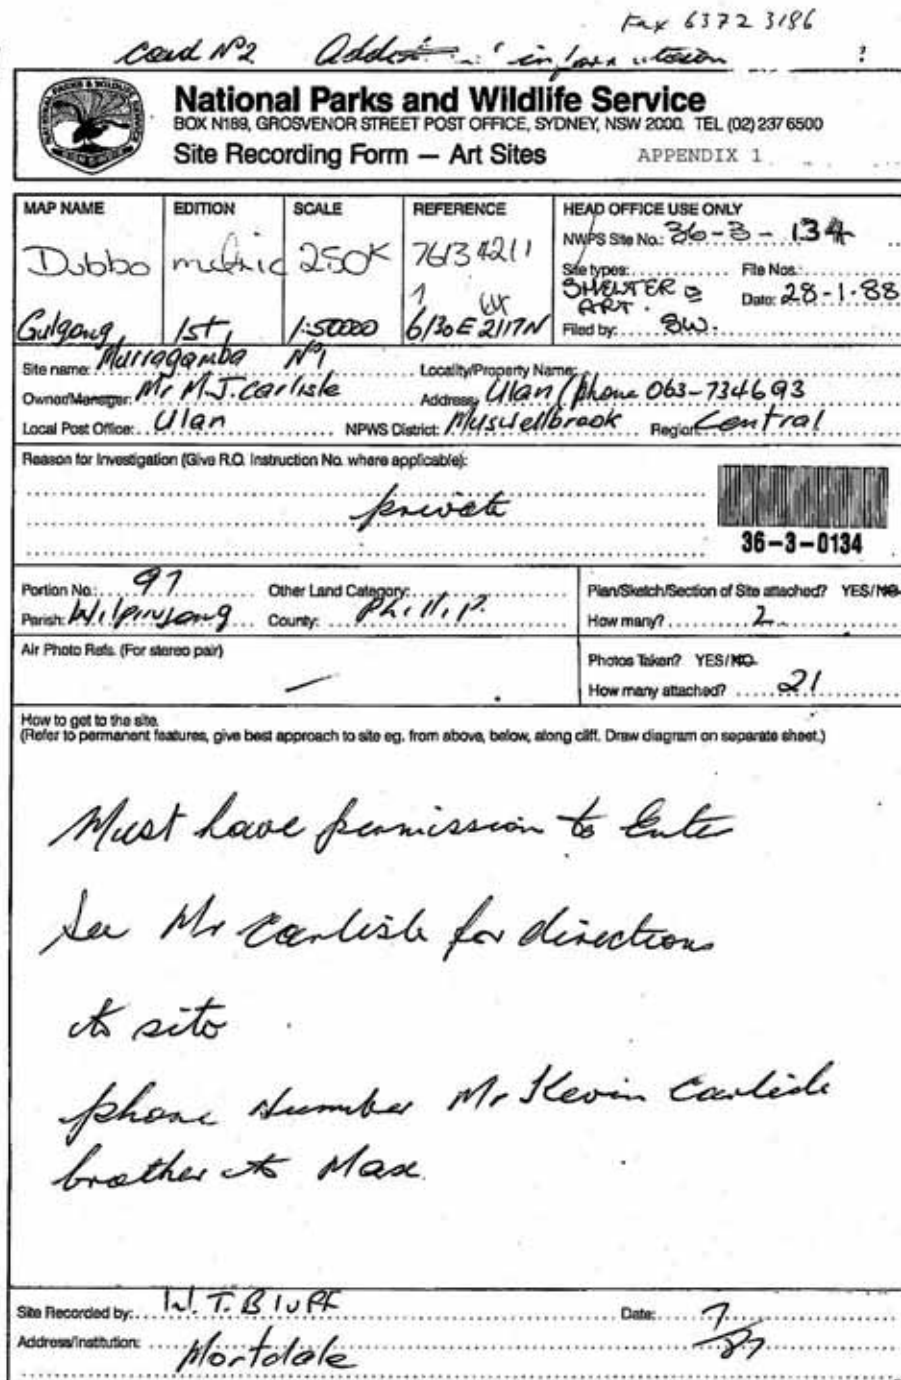 Fax 6372 3186
card Nº2 Addit information
National Parks and Wildlife Service
BOX N189, GROSVENOR STREET POST OFFICE, SYDNEY, NSW 2000. TEL (02) 237 6500
Site Recording Form — Art Sites APPENDIX 1
MAP NAME EDITION SCALE REFERENCE HEAD OFFICE USE ONLY
Dubbo metric 250K 7613 4211 NWPS Site No.: 36-3-134
Site types: SHELTER ART. File Nos.:
Date: 28-1-88
Gulgong 1st, 1:50000 6130E 2117N Filed by: SW.
Site name: Murragamba Nº1 Locality/Property Name:
Owner/Manager: Mr M.J. Carlisle Address: Ulan (phone 063-734693
Local Post Office: Ulan NPWS District: Muswellbrook Region: Central
Reason for Investigation (Give R.O. Instruction No. where applicable):
private
36-3-0134
Portion No.: 97 Other Land Category: Plan/Sketch/Section of Site attached? YES/NO
Parish: Wilpinjong County: Phillip. How many? 2
Air Photo Refs. (For stereo pair) Photos Taken? YES/NO
— How many attached? 21
How to get to the site.
(Refer to permanent features, give best approach to site eg. from above, below, along cliff. Draw diagram on separate sheet.)
Must have permission to Enter
See Mr Carlisle for directions
to site
phone number Mr Kevin Carlisle
brother to Max
Site Recorded by: W. T. Bluff Date: 7/87
Address/Institution: Mortdale